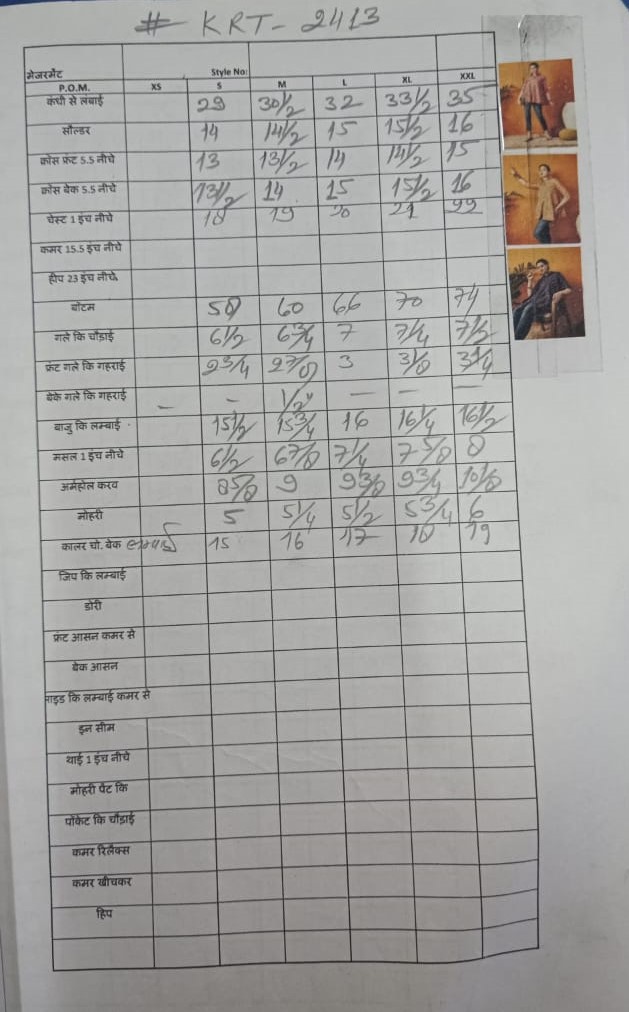 # KRT- 2413
मेजरमेंट Style No:
P.O.M. XS S M L XL XXL
कंधी से लंबाई 29 30 1/2 32 33 1/2 35
सोल्डर 14 14 1/2 15 15 1/2 16
क्रॉस फ्रंट 5.5 नीचे 13 13 1/2 14 14 1/2 15
क्रॉस बेक 5.5 नीचे 13 1/2 14 15 15 1/2 16
चेस्ट 1 इंच नीचे 18 19 20 21 22
कमर 15.5 इंच नीचे
हीप 23 इंच नीचे
बोटम 60 66 70 74
गले कि चौड़ाई 6 1/2 6 3/4 7 7 1/4 7 1/2
फ्रंट गले कि गहराई 2 3/4 2 7/8 3 3 1/8 3 1/4
बेके गले कि गहराई — – 1/2" — — —
बाजु कि लम्बाई 15 1/2 15 3/4 16 16 1/4 16 1/2
मसल 1 इंच नीचे 6 1/2 6 7/8 7 1/4 7 5/8 8
अर्महोल करव 8 5/8 9 9 3/8 9 3/4 10 1/8
मोहरी 5 5 1/4 5 1/2 5 3/4 6
कालर चो. बेक लम्बाई 15 16 17 18 19
जिप कि लम्बाई
डोरी
फ्रंट आसन कमर से
बेक आसन
साइड कि लम्बाई कमर से
इन सीम
थाई 1 इंच नीचे
मोहरी पेंट कि
पॉकेट कि चौड़ाई
कमर रिलैक्स
कमर खीचकर
हिप